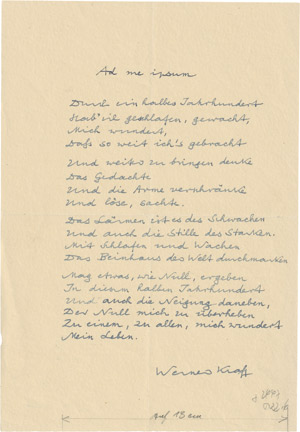 Ad me ipsum
Durch ein halbes Jahrhundert
Hab' viel geschlafen, gewacht,
Mich wundert,
Daß so weit ich's gebracht
Und weiter zu bringen denke
Das Gedachte
Und die Arme verschränke
Und löse, sachte.
Das Lärmen ist es des Schwachen
Und auch die Stille des Starken.
Mit Schlafen und Wachen
Das Beinhaus der Welt durchmarken
Mag etwas, wie Null, ergeben
In diesem halben Jahrhundert
Und auch die Neigung daneben,
Der Null mich zu überheben
Zu einem, zu allen, mich wundert
Mein Leben.
Werner Kraft
auf 13 cm